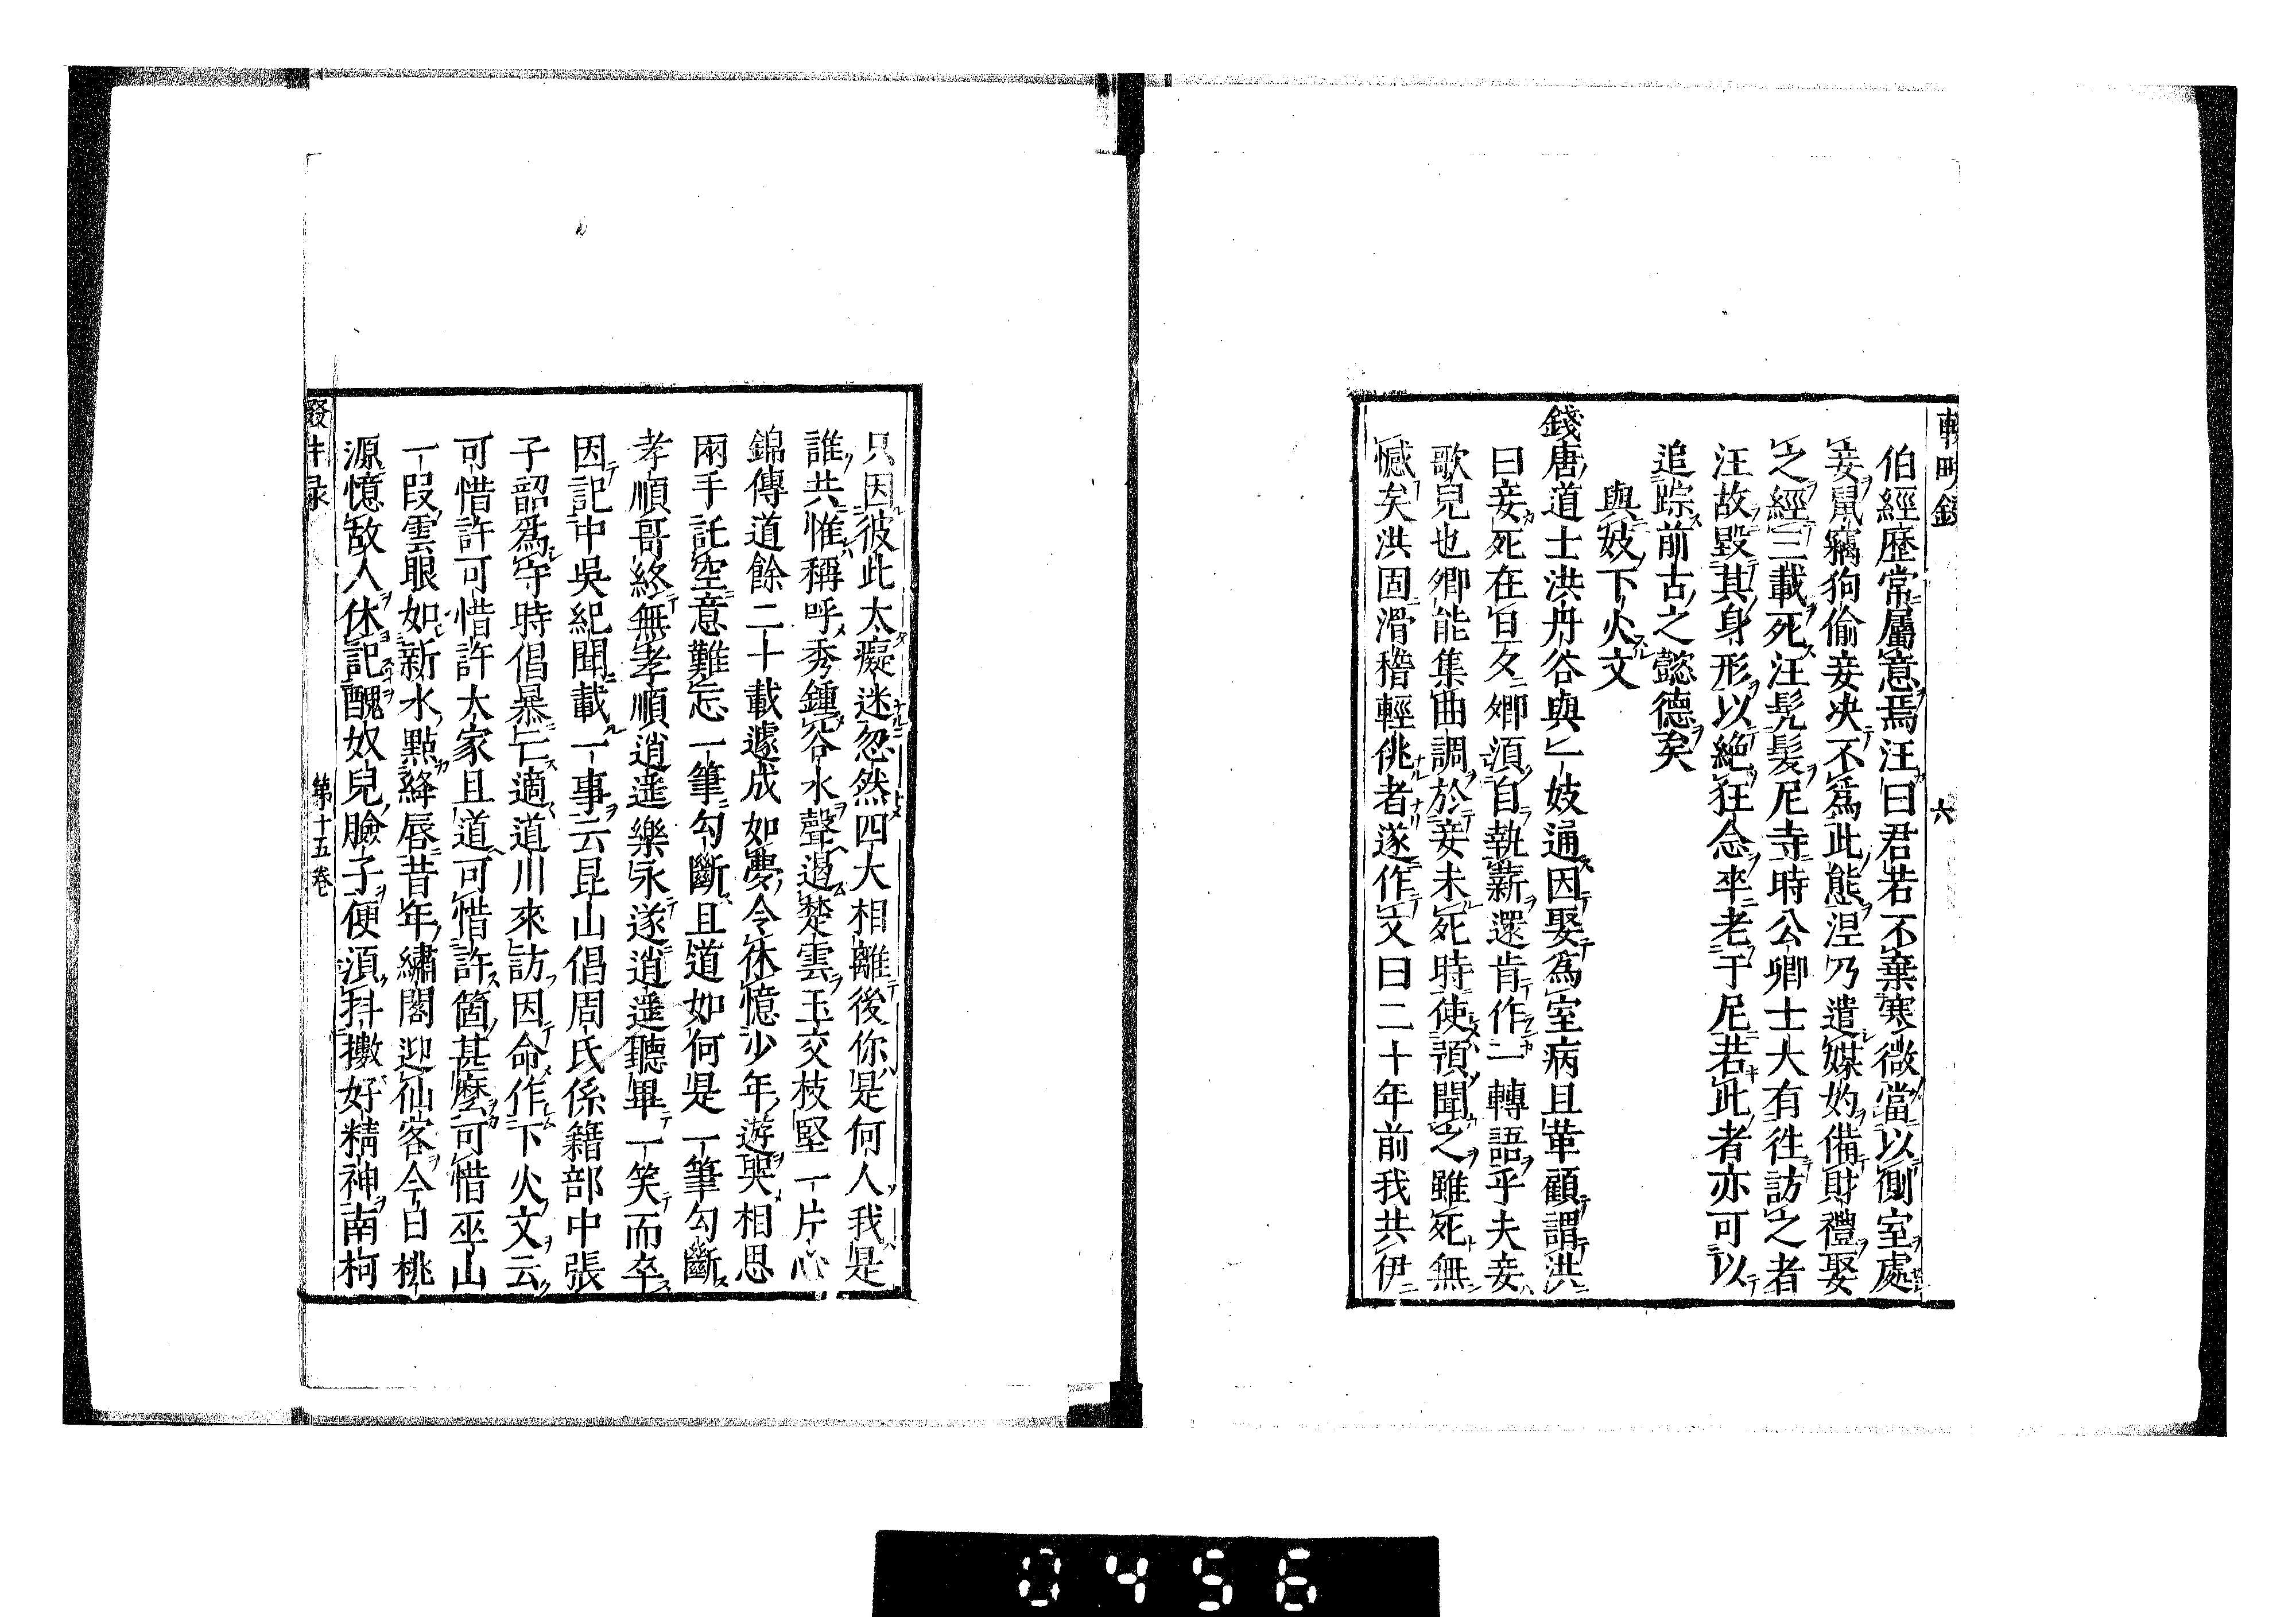 伯經歷常屬意焉汪曰君若不棄寒微當以側室處
妾鼠竊狗偷妾决不爲此態涅乃遣媒妁備財禮娶
之經三載死汪髠髮尼寺時公卿士大有徃訪之者
汪故毀其身形以絕狂念卒老于尼若此者亦可以
追踪前古之懿德矣
與妓下火文
錢唐道士洪丹谷與一妓通因娶爲室病且革顧謂洪
曰妾死在旦夕卿須自執薪還肯作一轉語乎夫妾
歌兒也卿能集曲調於妾未死時使預聞之雖死無
憾矣洪固滑稽輕佻者遂作文曰二十年前我共伊
六
只因彼此太癡迷忽然四大相離後你是何人我是
誰共惟稱呼秀鍾谷水聲遏楚雲玉交枝堅一片心
錦傳道餘二十載遽成如夢令休憶少年遊哭相思
兩手託空意難忘一筆勾斷且道如何是一筆勾斷
孝順哥終無孝順逍遥樂永遂逍遥聽畢一笑而卒
因記中吳紀聞載一事云崑山倡周氏係籍部中張
子韶爲守時倡暴亡適道川來訪因命作下火文云
可惜許可惜許大家且道可惜許箇甚麽可惜巫山
一段雲眼如新水點絳唇昔年繡閣迎仙客今日桃
源憶故人休記醜奴兒臉子便須抖擻好精神南柯
第十五卷
0456